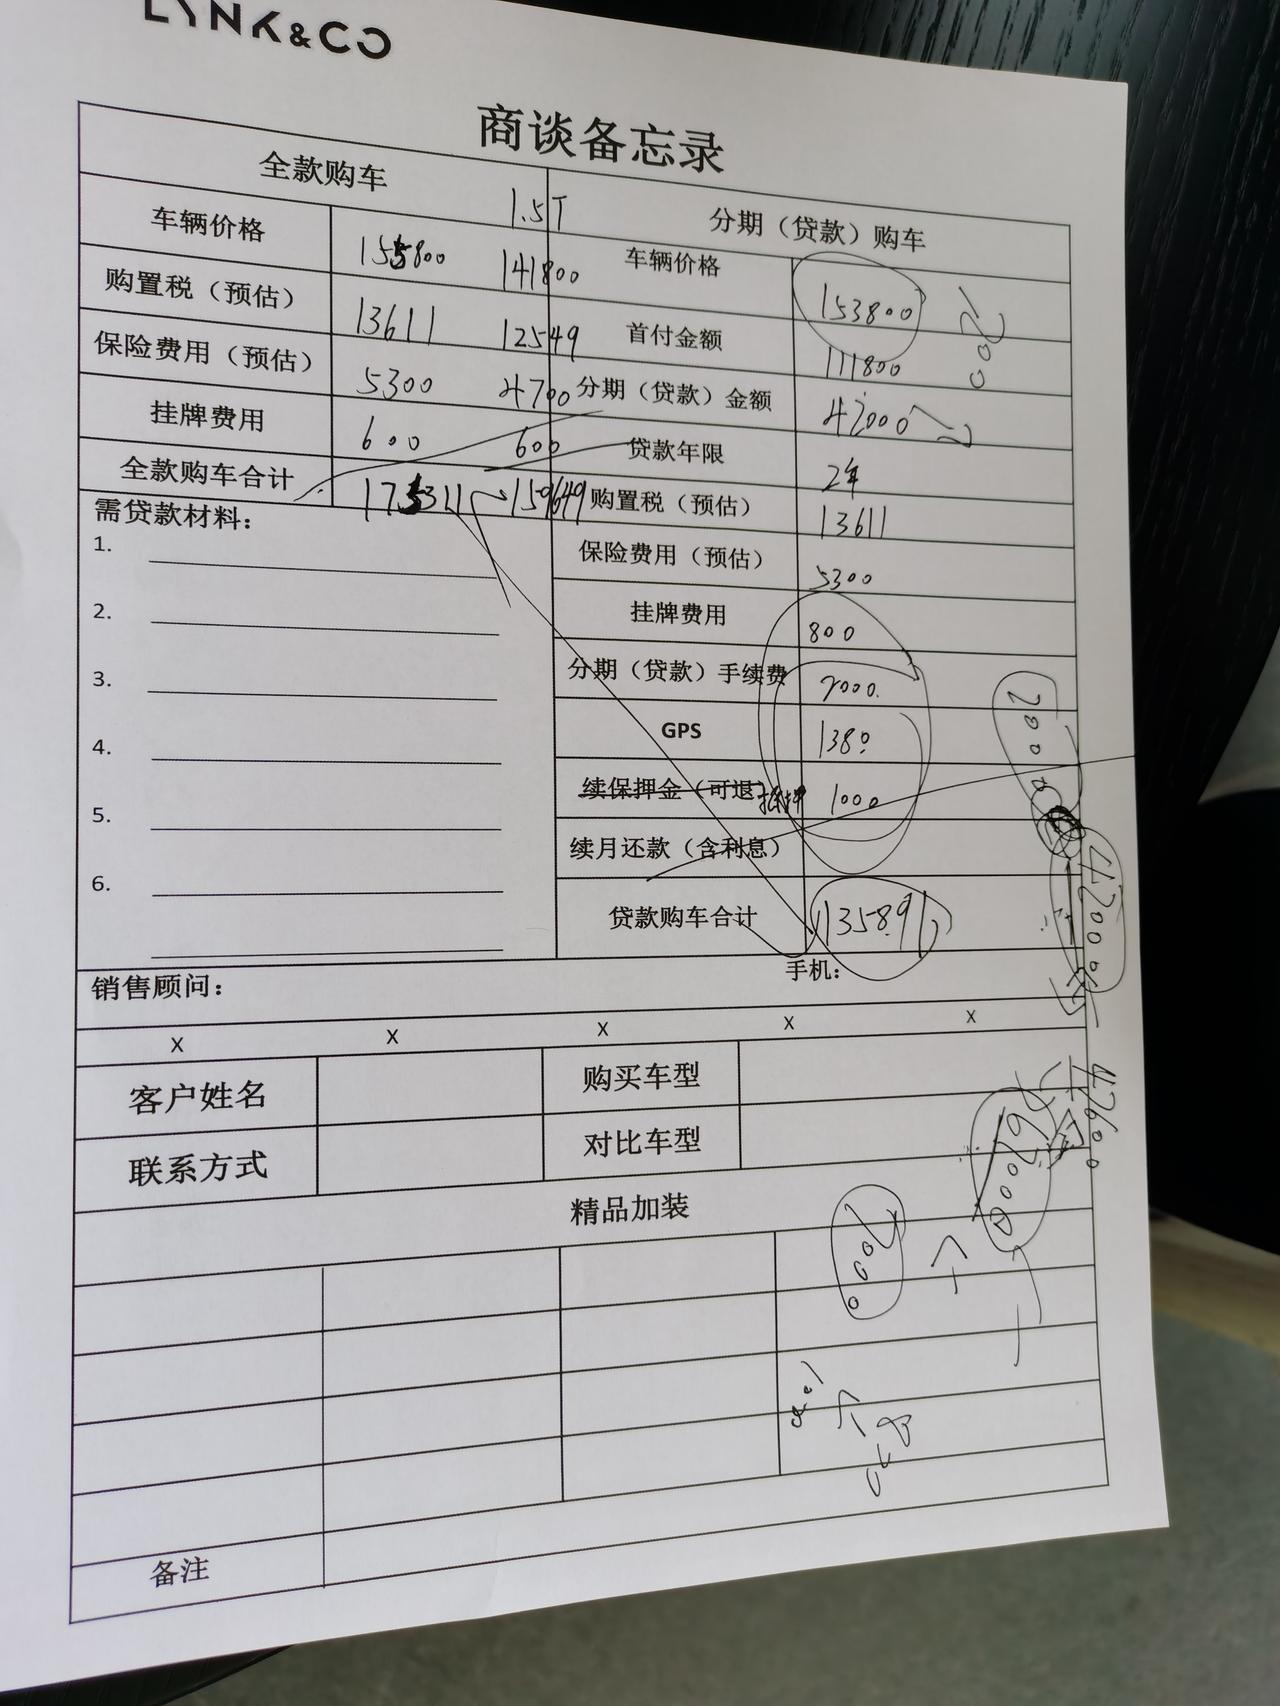 LYNK&CO
商谈备忘录
全款购车 1.5T 分期（贷款）购车
车辆价格 155800 141800 车辆价格 153800
购置税（预估） 13611 12549 首付金额 111800
保险费用（预估） 5300 4700 分期（贷款）金额 42000
挂牌费用 600 600 贷款年限 2年
全款购车合计 175311 159649 购置税（预估） 13611
需贷款材料： 保险费用（预估） 5300
1. 挂牌费用 800
2. 分期（贷款）手续费 2000
3. GPS 1380
4. 续保押金（可退） 抵押 1000
5. 续月还款（含利息）
6. 贷款购车合计 113589
销售顾问： 手机：
X X X X X
客户姓名 购买车型
联系方式 对比车型
精品加装
备注
2000
42000
2000